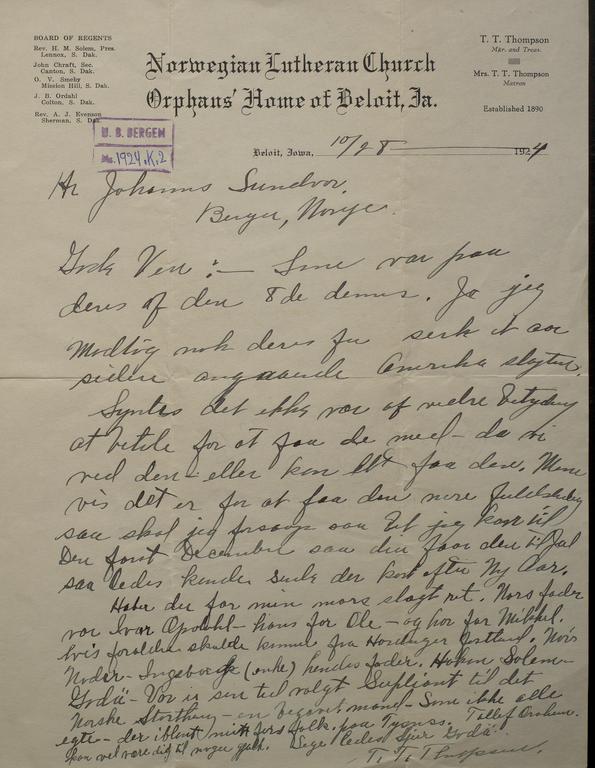 BOARD OF REGENTS
Rev. H. M. Solem, Pres.
Lennox, S. Dak.
John Chraft, Sec.
Canton, S. Dak.
O. V. Smeby
Mission Hill, S. Dak.
J. B. Ordahl
Colton, S. Dak.
Rev. A. J. Evenson
Sherman, S. Dak.
Norwegian Lutheran Church
Orphans' Home of Beloit, Ia.
T. T. Thompson
Mgr. and Treas.
Mrs. T. T. Thompson
Matron
Established 1890
U. B. BERGEN
Ms. 1924, K. 2
Beloit, Iowa, 10/28 1924
Hr Johannes Sundvor,
Bergen, Norge.
Gode Ven :— Svar paa
deres af den 8de dennes. Ja jeg
Modtog nok deres for
siden angaaende Amerika slagten.
Syntes det ikke var af videre Betydning
at betale for at faa de med – da vi
ved den – eller kan faa den. Mene
vis det er for at faa den mere fuldstendig
saa skal jeg til jeg kan til
Den først December saa du faar den til Jul
saa ledes kender den kort efter Ny Aar.
Haber du for min mors slagt ret. Mors fader
var Ivar Opdahl – hans for Ole – og hor for Mikkel.
hvis foreldre skulde komme fra Hardanger Mors
Moder – Ingeborg (enke) hendes fader. Haken Solem
Godø – Vor
Norske Storthing – en – Som ikke alle
egte – der iblent folk. paa Tysnes.
kan vel være dig til nogen gavn. Godø.
T. T. Thompson.